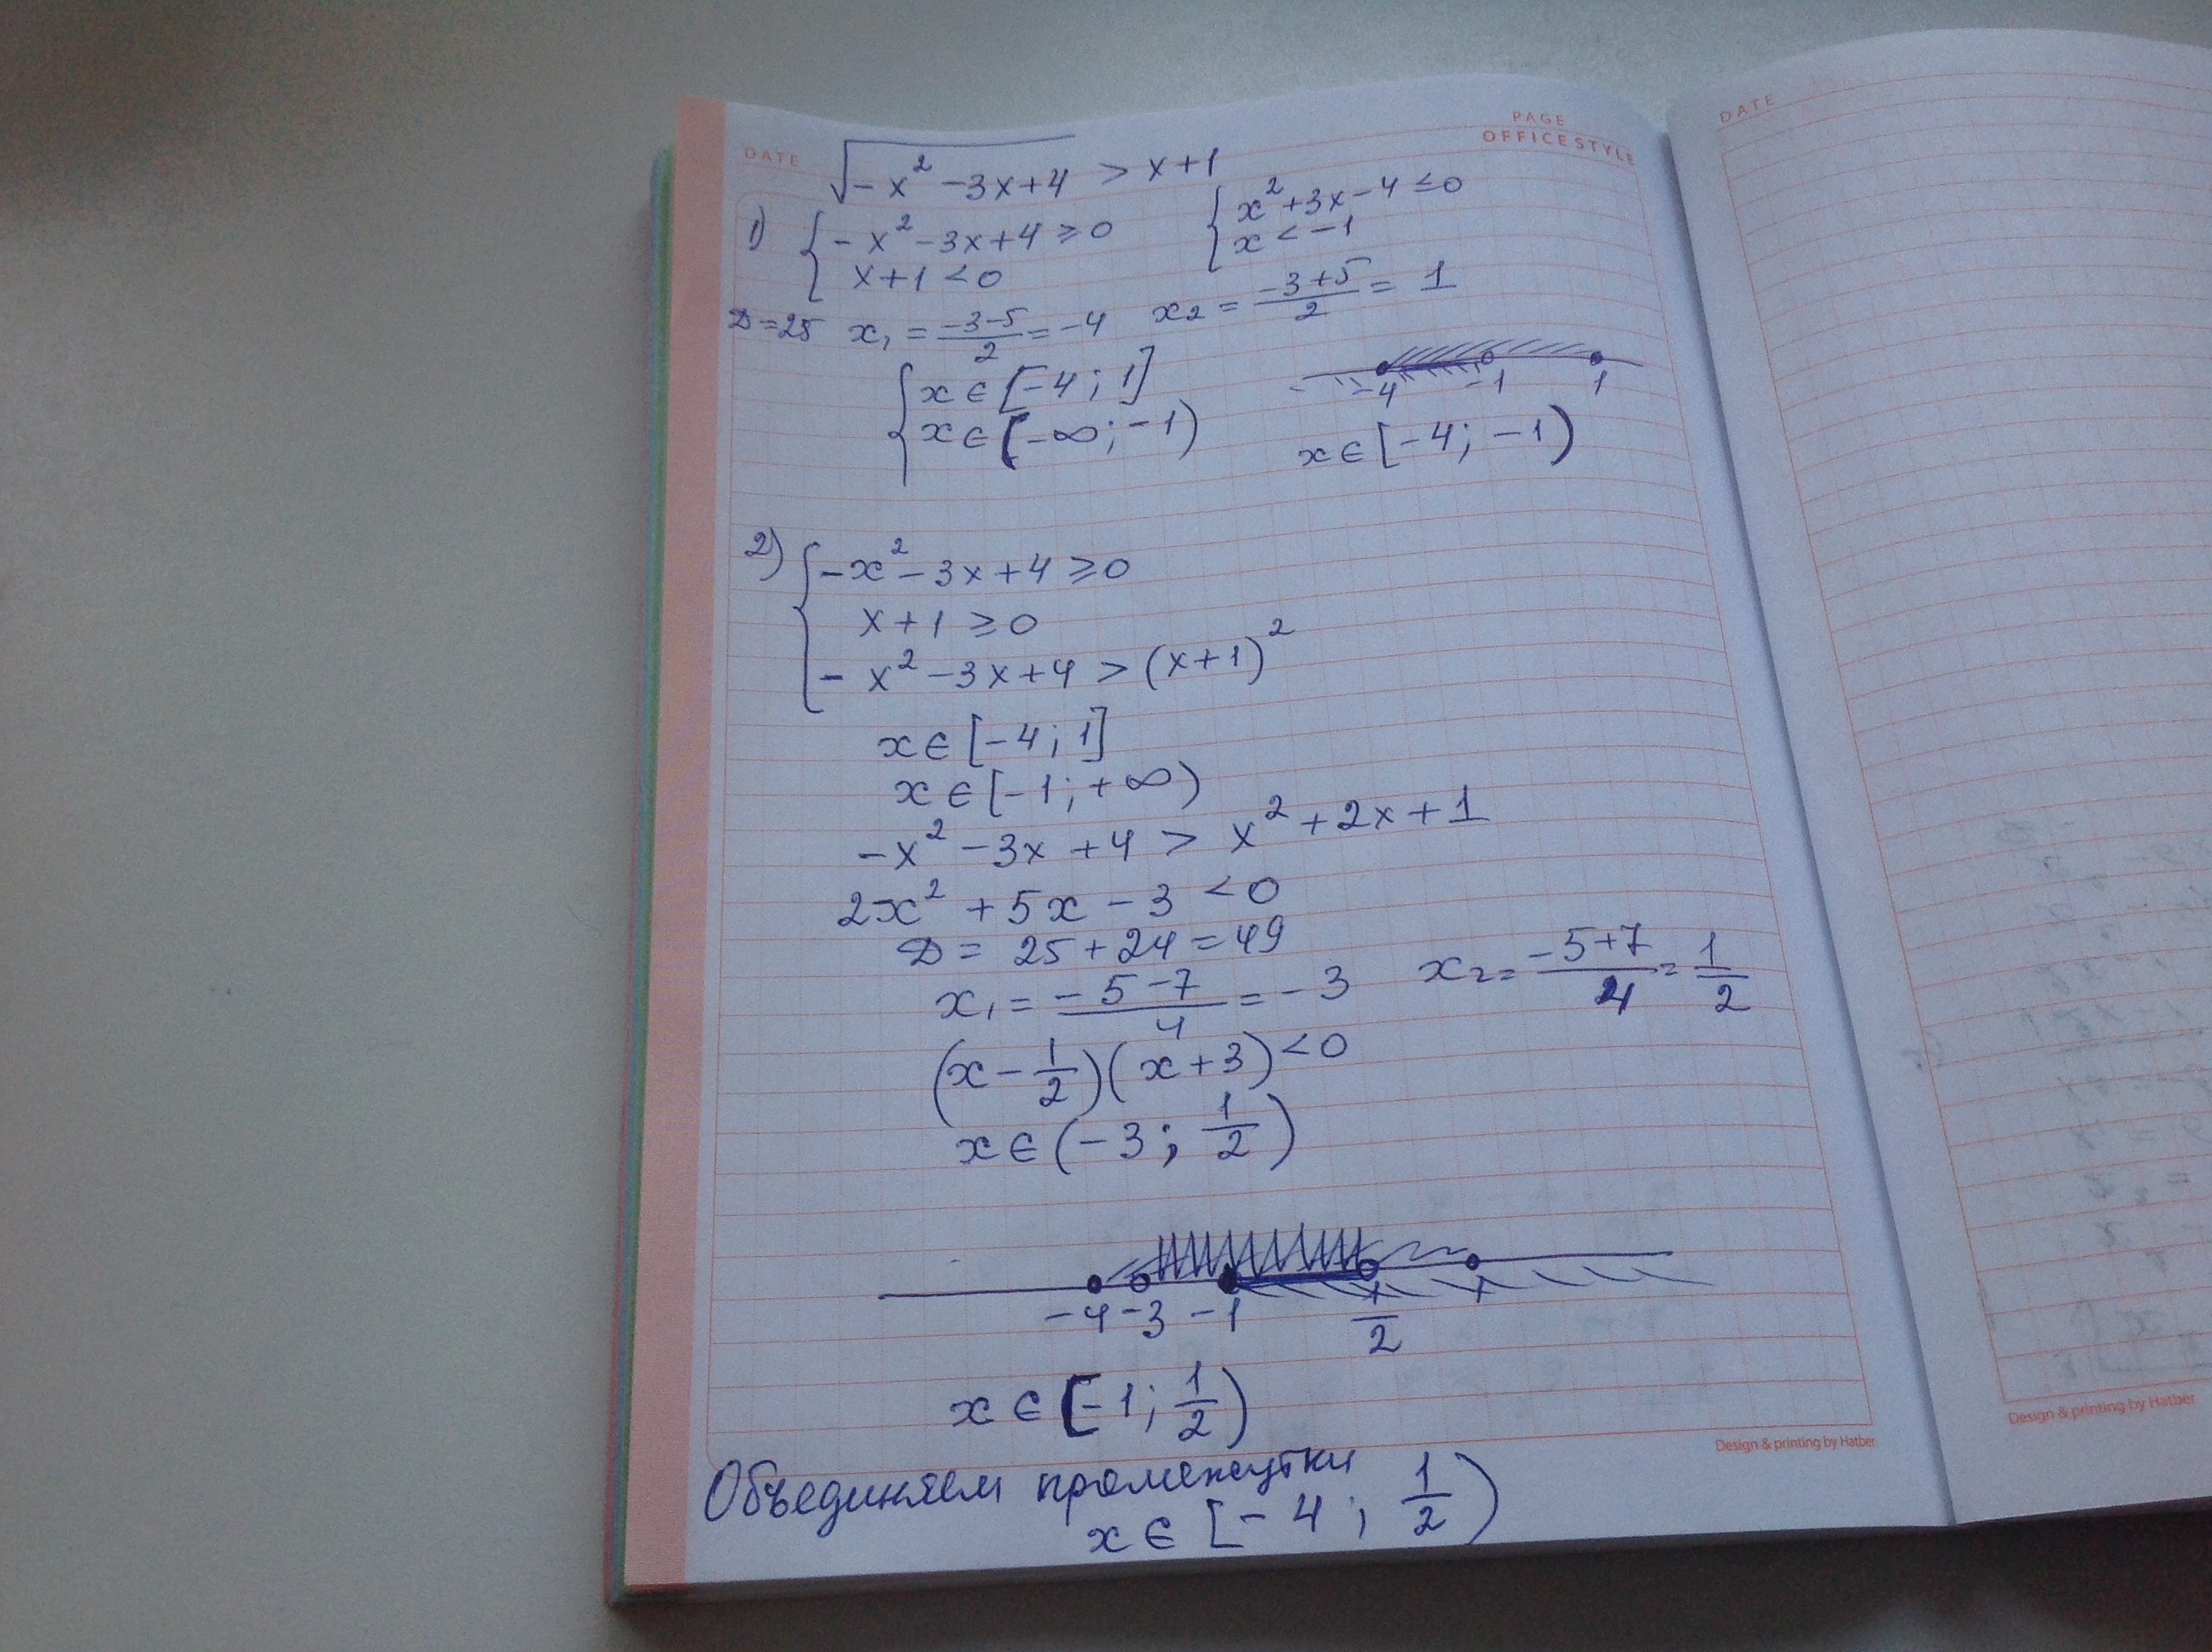 DATE
PAGE
OFFICE STYLE
DATE
√(-x² - 3x + 4) > x + 1
1) { -x² - 3x + 4 ≥ 0
x + 1 < 0
{ x² + 3x - 4 ≤ 0
x < -1
D = 25 x₁ = (-3-5)/2 = -4 x₂ = (-3+5)/2 = 1
{ x ∈ [-4; 1]
x ∈ (-∞; -1)
-4 -1 1
x ∈ [-4; -1)
2) { -x² - 3x + 4 ≥ 0
x + 1 ≥ 0
-x² - 3x + 4 > (x+1)²
x ∈ [-4; 1]
x ∈ [-1; +∞)
-x² - 3x + 4 > x² + 2x + 1
2x² + 5x - 3 < 0
D = 25 + 24 = 49
x₁ = (-5-7)/4 = -3 x₂ = (-5+7)/4 = 1/2
(x - 1/2)(x + 3) < 0
x ∈ (-3; 1/2)
-4 -3 -1 1/2 1
x ∈ [-1; 1/2)
Объединяем промежутки
x ∈ [-4; 1/2)
Design & printing by Hatber
Design & printing by Hatber